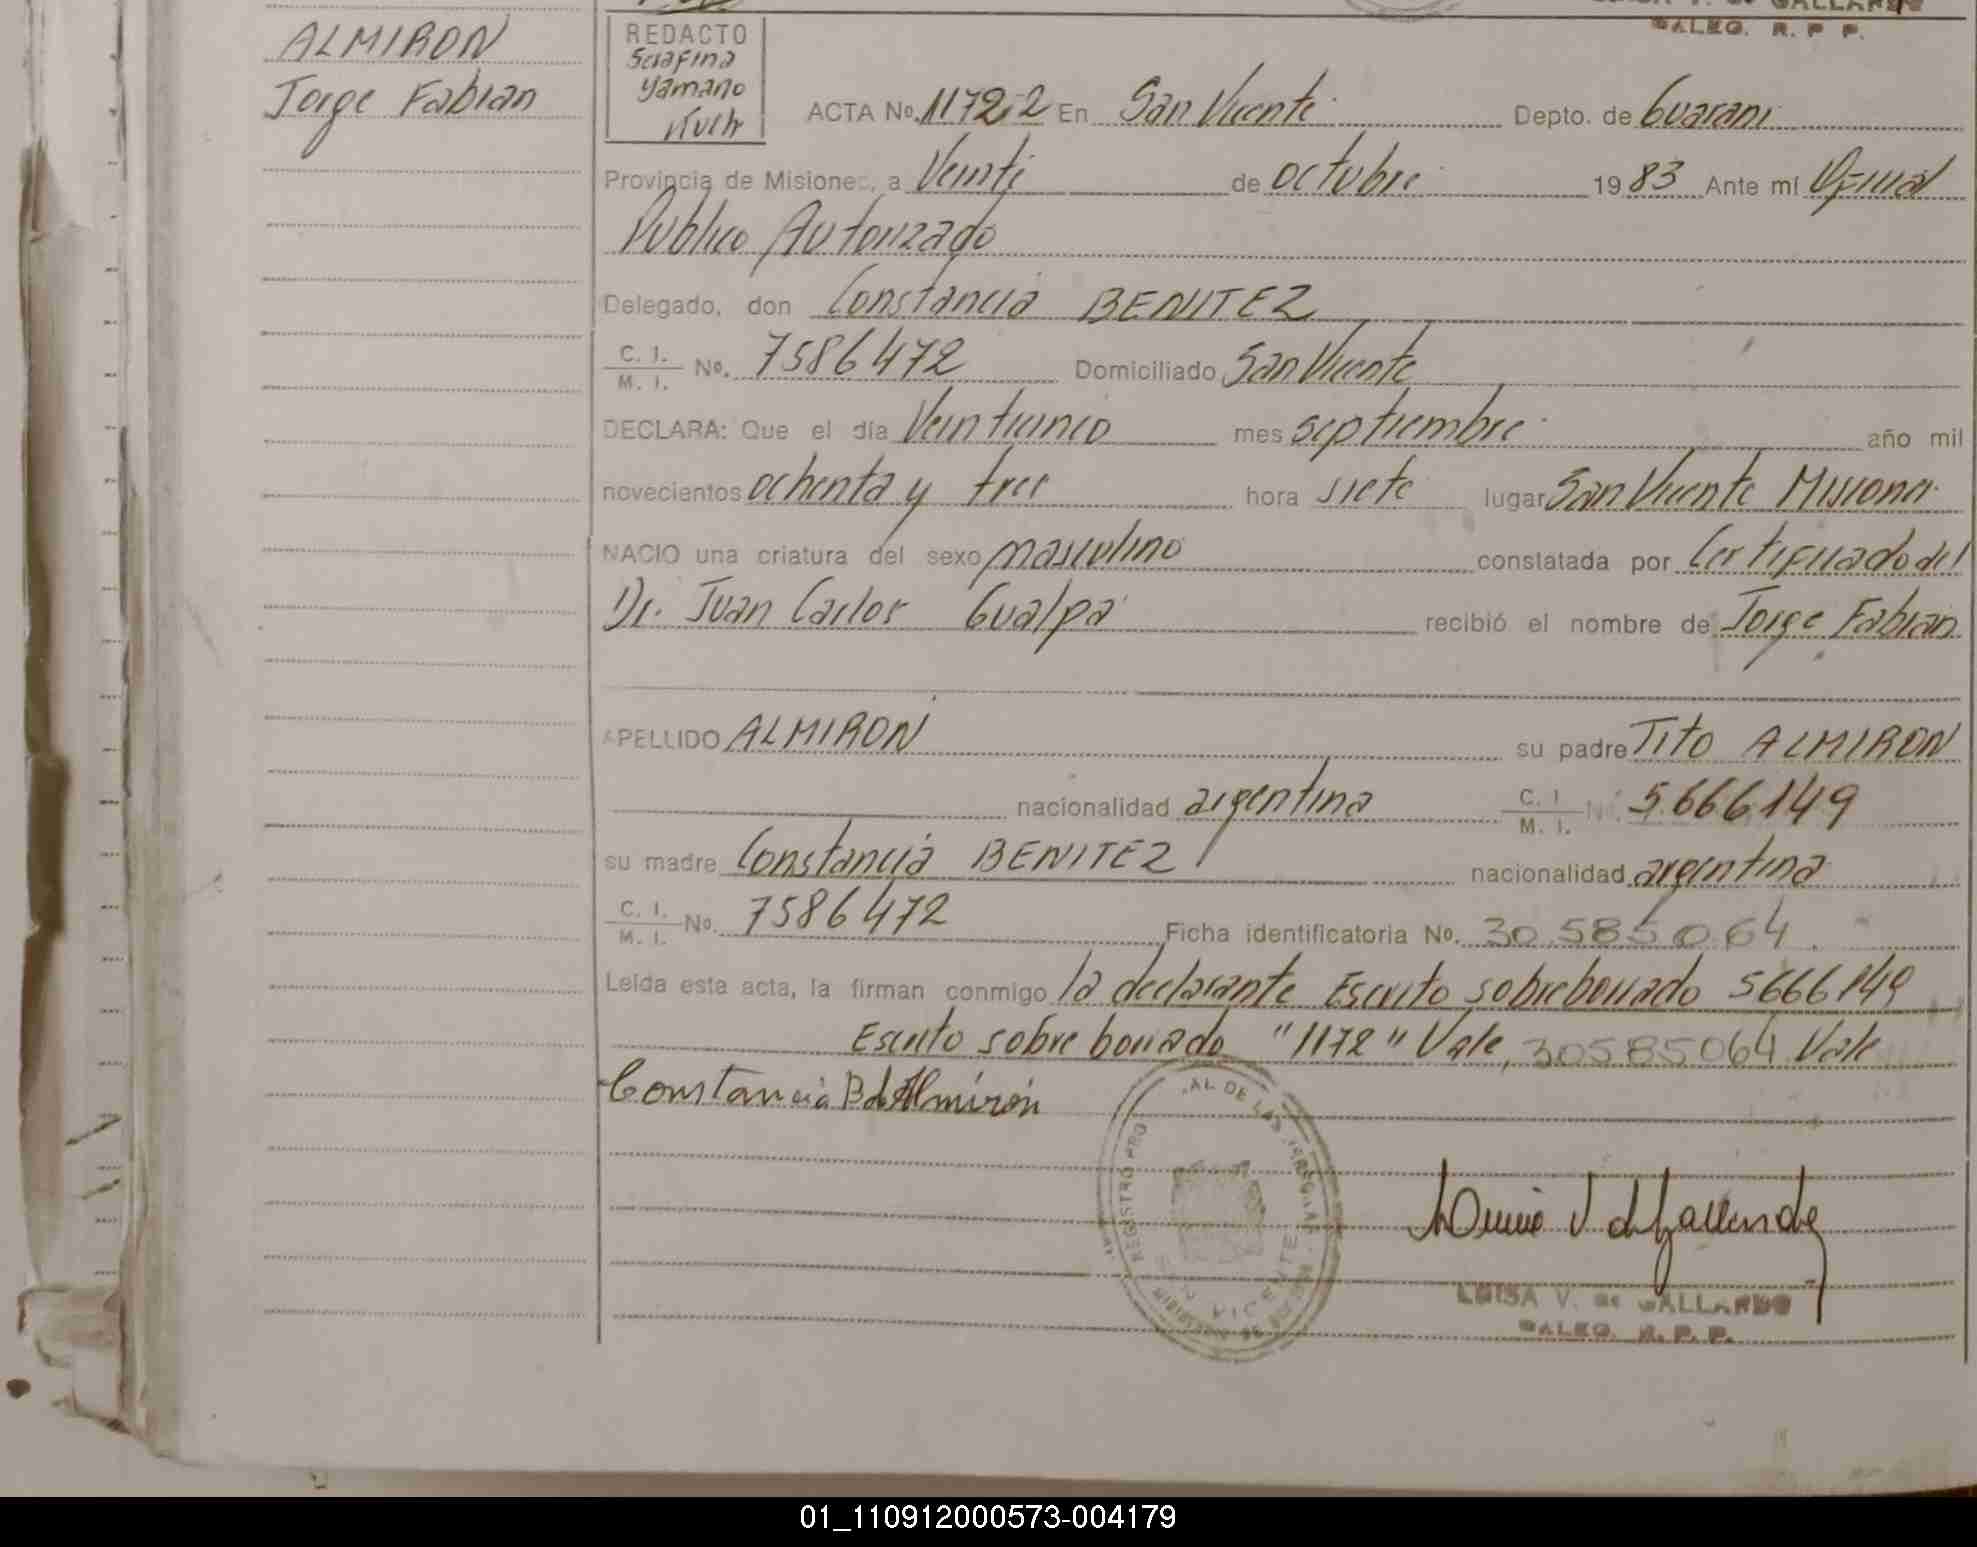 ALMIRON
Jorge Fabian
REDACTO
Serafina
Yamano
LUISA V. de GALLARDO
DALEG. R. P. P.
ACTA No. 1172 En San Vicente Depto. de Guarani
Provincia de Misiones, a Veinte de octubre 1983 Ante mí Oficial
Publico Autorizado
Delegado, don Constancia BENITEZ
C. I.
M. I. No. 7586472 Domiciliado San Vicente
DECLARA: Que el día Veinticinco mes septiembre año mil
novecientos ochenta y tres hora siete lugar San Vicente Misiones
NACIO una criatura del sexo masculino constatada por Certificado del
Dr. Juan Carlos Gualpa recibió el nombre de Jorge Fabian
APELLIDO ALMIRON su padre Tito ALMIRON
nacionalidad argentina C. I.
M. I. No. 5.666149
su madre Constancia BENITEZ nacionalidad argentina
C. I.
M. I. No. 7586472 Ficha identificatoria No. 30.585.064
Leída esta acta, la firman conmigo la declarante Escrito sobreborrado 5666149
Escrito sobre borrado "1172" Vale, 30585064 Vale
Constancia B de Almirón
REGISTRO PRO AL DE LAS PERSONAS
VICENTE
Luisa V de Gallardo
LUISA V. de GALLARDO
DALEG. R. P. P.
01_110912000573-004179